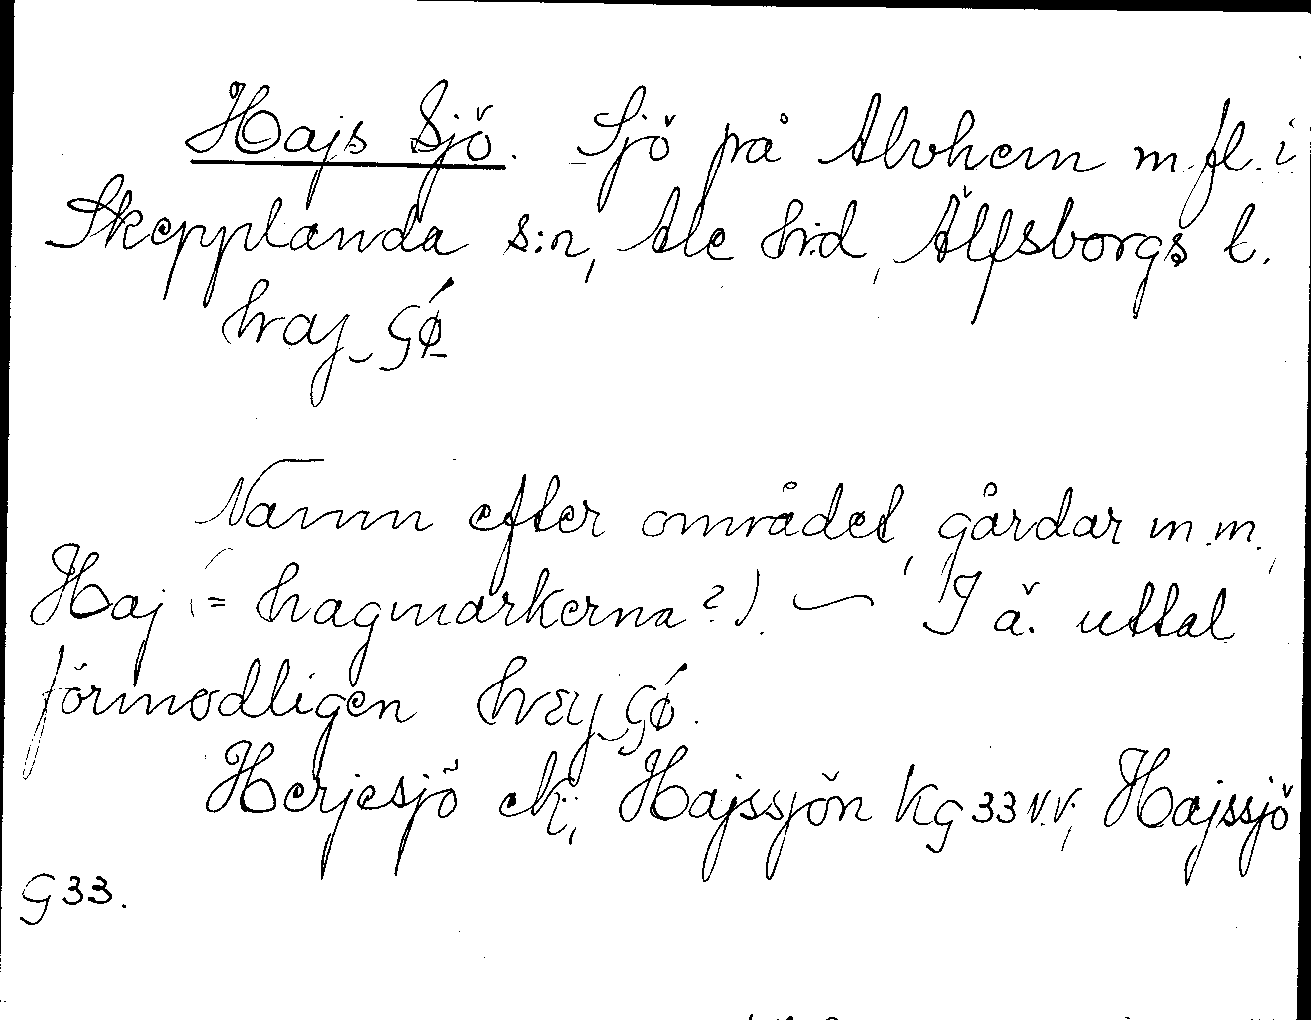 Hajs Sjö. Sjö på Alvhem m. fl. i
Skepplanda s:n, Ale h:d, Älfsborgs l.
Namn efter området, gårdar m. m.,
Haj (= hagmarkerna?). — I ä. uttal
förmodligen
Herjesjö ek., Hajssjön Kg 33 N.V., Hajssjö
G 33.